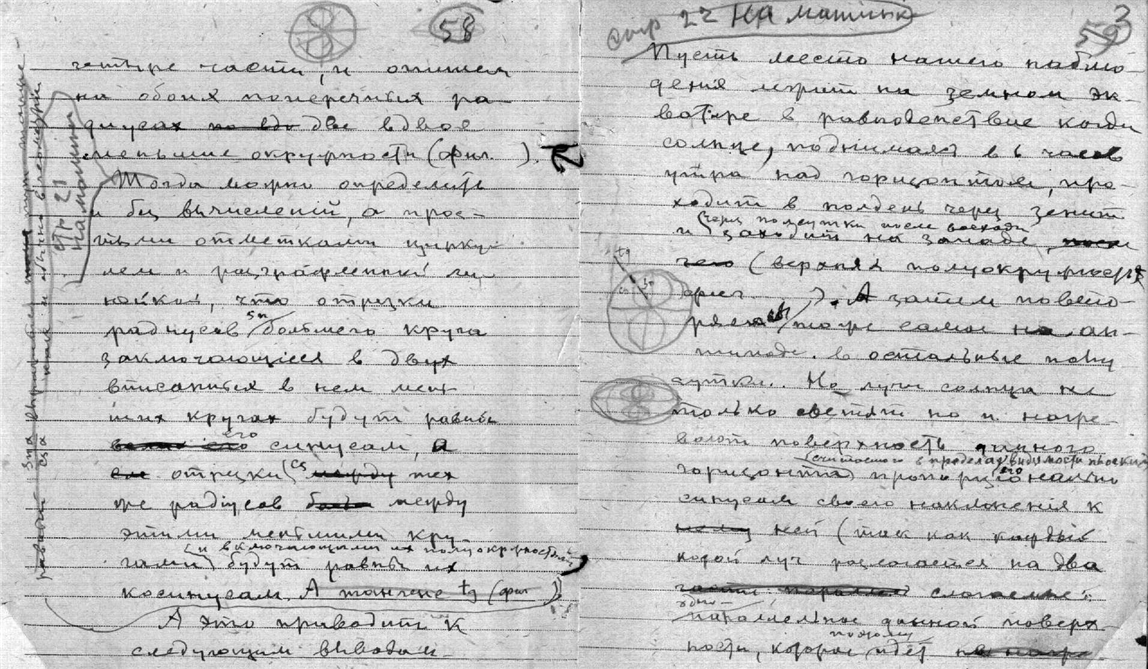 58
четыре части, и опишем
на обоих поперечных ра-
диусах две вдвое
меньшие окружности (фиг. ).
стр 21
На машинку
Тогда можно определить
и без вычислений, а прос-
тыми отметками цирку-
лем и разграфленной ли-
нейкой, что отрезки
радиусов большего круга
заключающиеся в двух
вписанных в нем мень-
ших кругах будут равны
его синусам, а
отрезки тех
же радиусов между
этими меньшими кру-
и включающими их полуокружностями
гами будут равны их
косинусам. А тангенс tg (фиг )
А это приводит к
следующим выводам
стр 22 На машинку
59
3
Пусть место нашего наблю
дения лежит на земном эк-
ваторе в равноденствие когда
солнце, поднимаясь в 6 часов
утра над горизонтом, про-
ходит в полдень через зенит
через полсутки после восхода
и заходит на западе,
(верхняя полуокружность
фиг. ). А затем повто-
ряется то же самое на ан-
типоде в остальные полу
сутки. Но лучи солнца не
только светят но и нагре-
вают поверхность данного
(считаемого в пределах видимости плоским
горизонта) пропорционально
синусам своего наклонения к
ней (так как каждый
косой луч разлагается на два
слагаемые:
одно
параллельное данной поверх-
поэтому
ности, которое идет